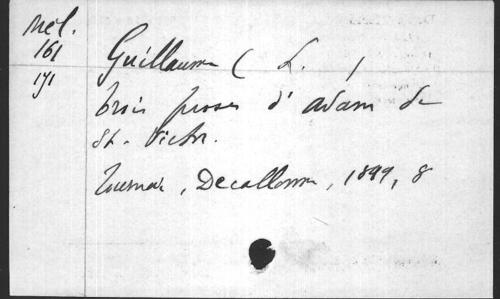 Mél.
161
171
Guillaume ( L. )
trois proses d'Adam de
St. Victor.
Tournai, Decallonne, 1899, 8